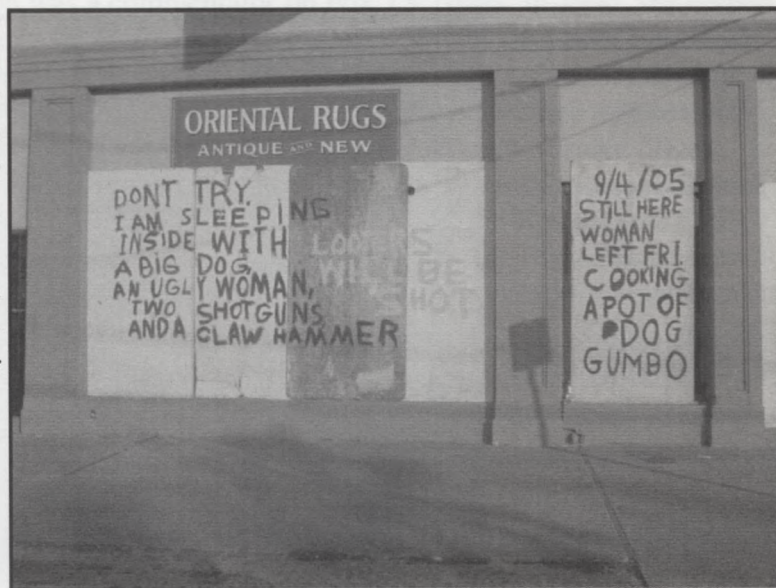 ORIENTAL RUGS
ANTIQUE AND NEW
DONT TRY.
I AM SLEEPING
INSIDE WITH
A BIG DOG,
AN UGLY WOMAN,
TWO SHOTGUNS
AND A CLAW HAMMER
LOOTERS
WILL BE
SHOT
9/4/05
STILL HERE
WOMAN
LEFT FRI.
COOKING
A POT OF
DOG
GUMBO